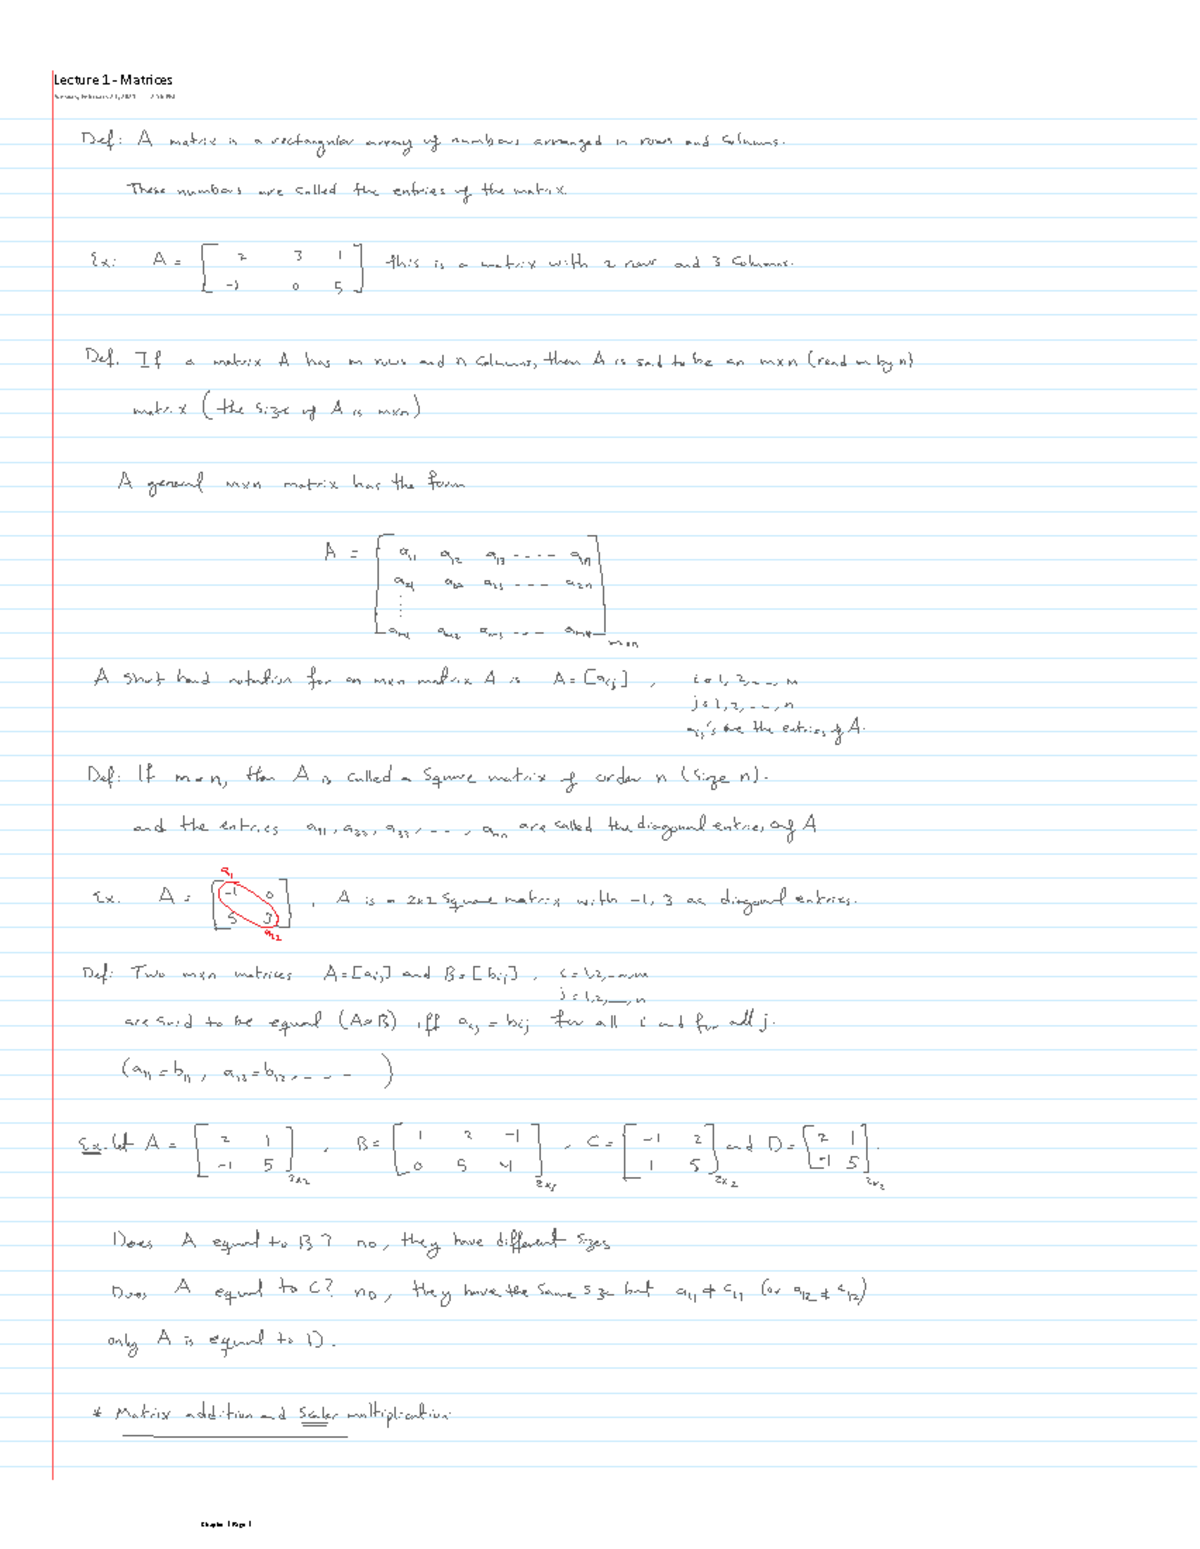 Lecture 1 - Matrices
Def: A matrix is a rectangular array of numbers arranged in rows and columns.
These numbers are called the entries of the matrix.
Ex: A = [ 2 3 1 ] this is a matrix with 2 rows and 3 columns.
0 5
Def. If a matrix A has m rows and n columns, then A is said to be an mxn (read m by n)
matrix (the size of A is mxn)
A general mxn matrix has the form
A = [ a11 a12 a13 ---- a1n
a21 a22 a23 --- a2n
⋮
am1 am2 am3 --- amn ] mxn
A short hand notation for an mxn matrix A is A = [aij] , i = 1, 2, ---, m
j = 1, 2, ---, n
aij's are the entries of A.
Def: If m=n, then A is called a square matrix of order n (size n).
and the entries a11, a22, a33, ---, ann are called the diagonal entries of A
a11
Ex. A = [ -1 0 ] , A is a 2x2 square matrix with -1, 3 as diagonal entries.
5 3
a22
Def: Two mxn matrices A=[aij] and B=[bij] , i = 1,2,---,m
j = 1,2,---,n
are said to be equal (A=B) iff aij = bij for all i and for all j.
(a11 = b11 , a12 = b12, --- )
Ex. let A = [ 2 1 ] , B = [ 1 2 -1 ] , C = [ -1 2 ] and D = [ 2 1 ] .
-1 5 2x2 0 5 4 2x3 1 5 2x2 -1 5 2x2
Does A equal to B? no, they have different sizes
Does A equal to C? no, they have the same size but a11 ≠ c11 (or a12 ≠ c12)
only A is equal to D.
* Matrix addition and Scaler multiplication
Chapter 1 Page 1